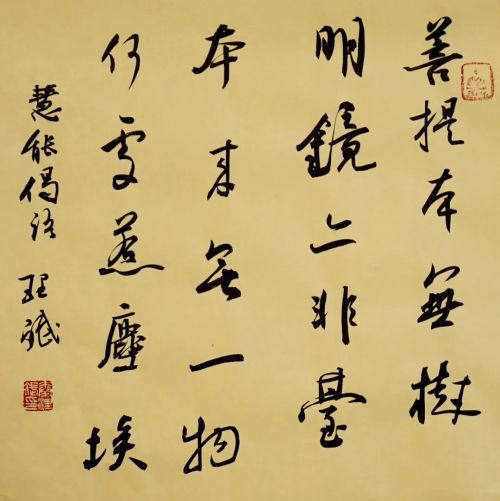 善提本無樹
明鏡亦非臺
本來無一物
何處惹塵埃
慧能偈語